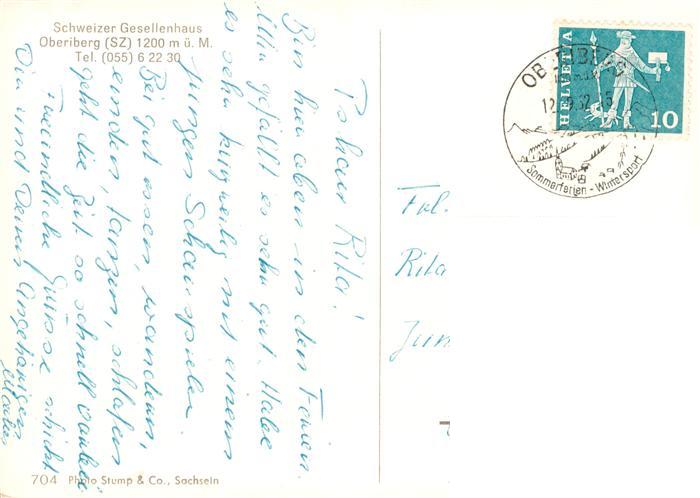 Schweizer Gesellenhaus
Oberiberg (SZ) 1200 m ü. M.
Tel. (055) 6 22 30
Rita!
Bin hier oben in den Ferien.
Mir gefällt es sehr gut. Habe
es sehr kurzweilig mit einem
jungen Schauspieler.
Bei gut essen, wandern,
tanzen, schlafen
geht die Zeit so schnell vorbei
Freundliche Grüsse schickt
Dir und Deinen Angehörigen
704 Photo Stump & Co., Sachseln
HELVETIA
10
Sommerferien - Wintersport
Frl.
Rita